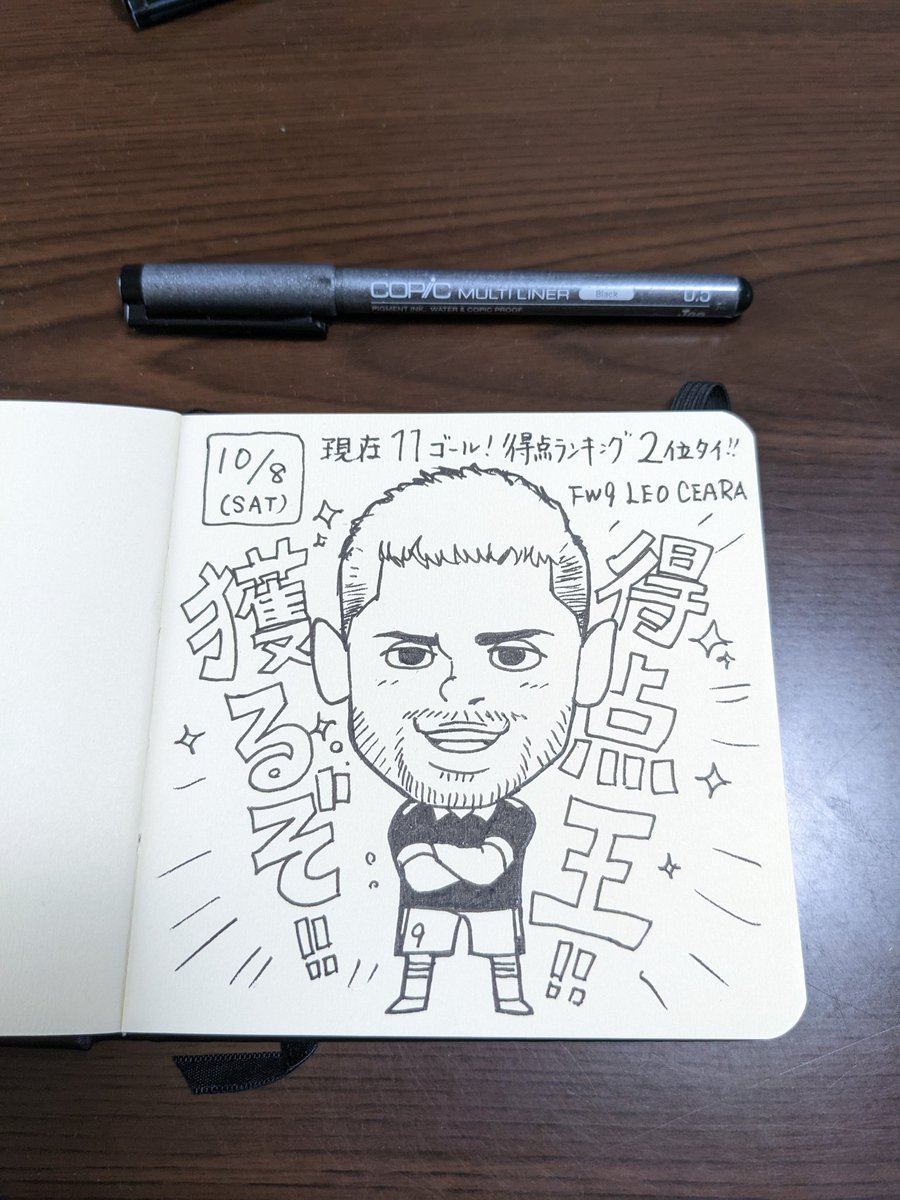 COPIC MULTI LINER Black 0.5
PIGMENT INK. WATER & COPIC PROOF
10/8
(SAT)
現在11ゴール!得点ランキング2位タイ!!
FW9 LEO CEARA
得点王!!
獲るぞ!!
9